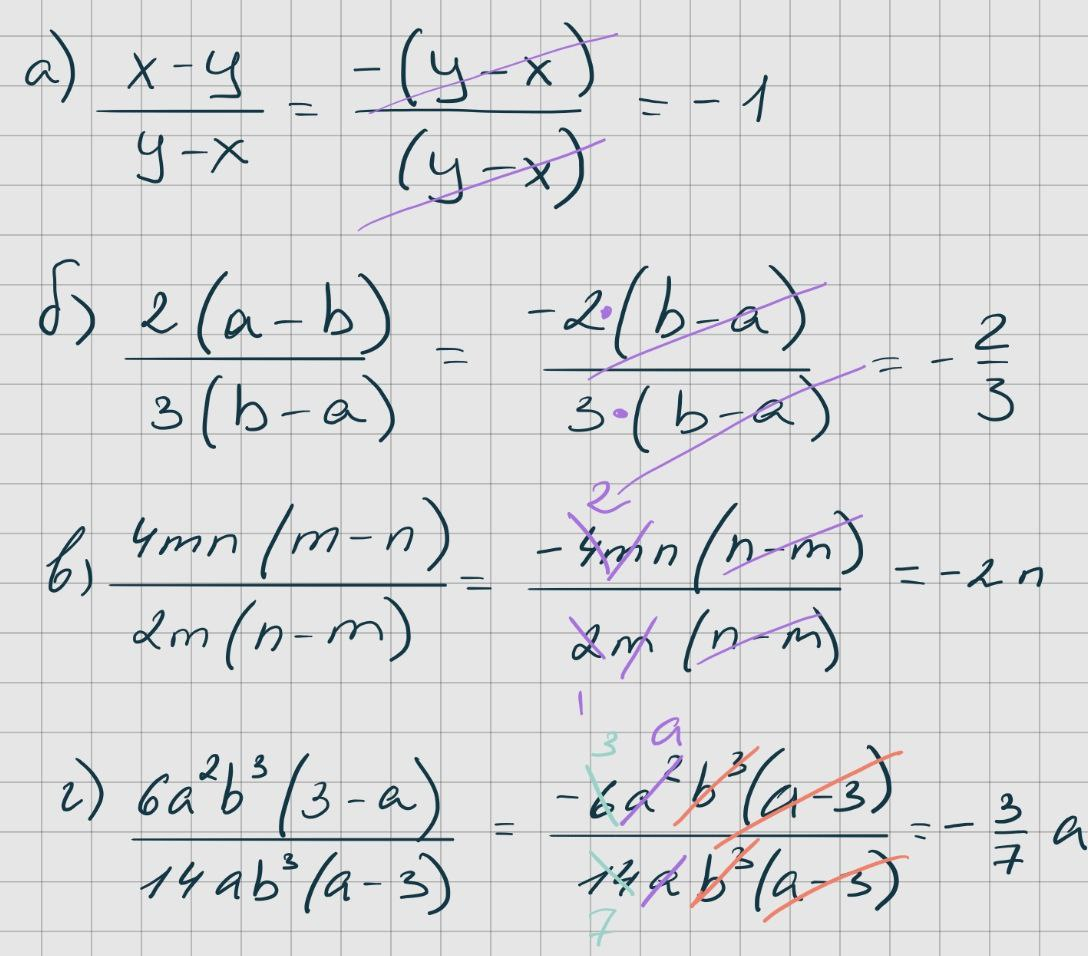 а) (x - y)/(y - x) = (-(y - x))/((y - x)) = - 1
б) (2(a - b))/(3(b - a)) = (-2·(b - a))/(3·(b - a)) = - 2/3
2
в) (4mn(m - n))/(2m(n - m)) = (-4mn(n - m))/(2m(n - m)) = -2n
1
3 a
г) (6a²b³(3 - a))/(14ab³(a - 3)) = (-6a²b³(a - 3))/(14ab³(a - 3)) = - 3/7 a
7